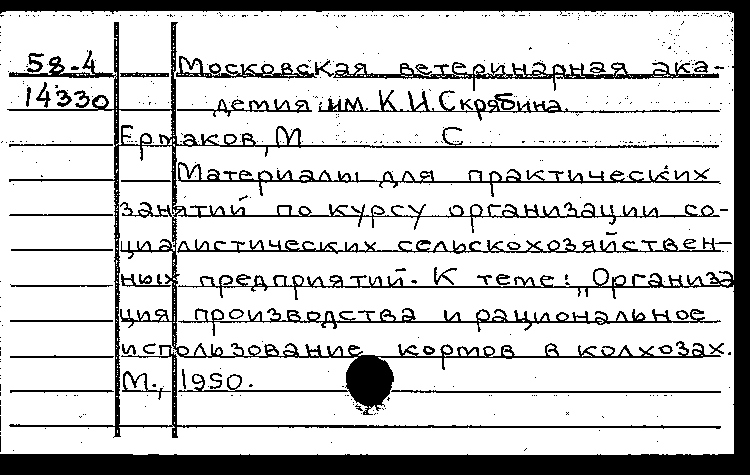 58-4 Московская ветеринарная ака-
14330 демия им. К.И.Скрябина.
Ермаков, М С
Материалы для практических
занятий по курсу организации со-
циалистических сельскохозяйствен-
ных предприятий. К теме: „Организа
ция производства и рациональное
использование кормов в колхозах.
М., 1950.